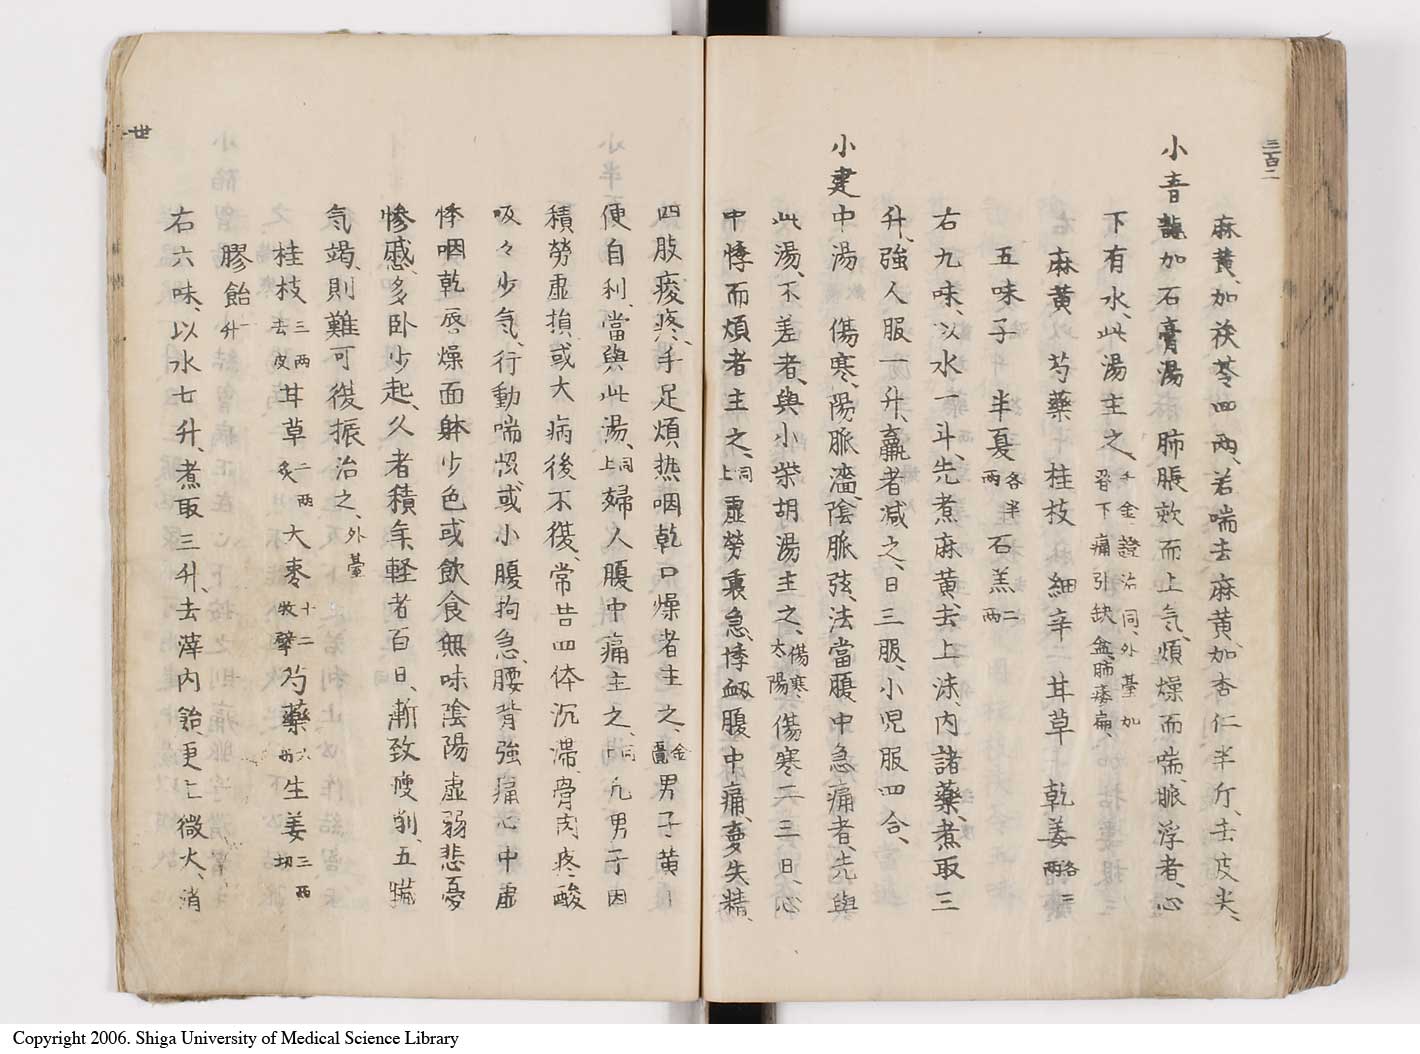 三百二
麻黄、加茯苓四両、若喘去麻黄、加杏仁半斤、去皮尖、
小青龍加石膏湯 肺脹欬而上気、煩燥而喘、脈浮者、心
下有水、此湯主之、千金證治同、外臺加脇下痛引缺盆、肺痿扁、
麻黄 芍藥 桂枝 細辛 甘草 乾姜各三両
五味子 半夏各半両 石羔二両
右九味、以水一斗、先煮麻黄、去上沫、内諸藥、煮取三
升、強人服一升、羸者減之、日三服、小児服四合、
小建中湯 傷寒、陽脈濇、陰脈弦、法當腹中急痛者、先與
此湯、不差者、與小柴胡湯主之、傷寒太陽傷寒二三日、心
中悸而煩者主之、同上虚勞裏急、悸衄腹中痛、夢失精、
四肢痠疼、手足煩、热咽乾口燥者主之、金匱男子黄小
便自利、當與此湯、同上婦人腹中痛主之、同凡男子因
積勞虚損或大病後不復、常苦四体沉滞、骨肉疼酸
吸々少気、行動喘惙或小腹拘急、腰背強痛、心中虚
悸咽乾唇燥面躰少色或飲食無味陰陽虚弱悲憂
惨慼、多卧少起、久者積年軽者百日、漸致瘦削、五臓
気竭、則難可復振治之、外臺
桂枝三両去皮甘草二両炙大棗十二枚擘芍藥六両生姜三両切
膠飴一升
右六味、以水七升、煮取三升、去滓内飴、更上微火、消
世